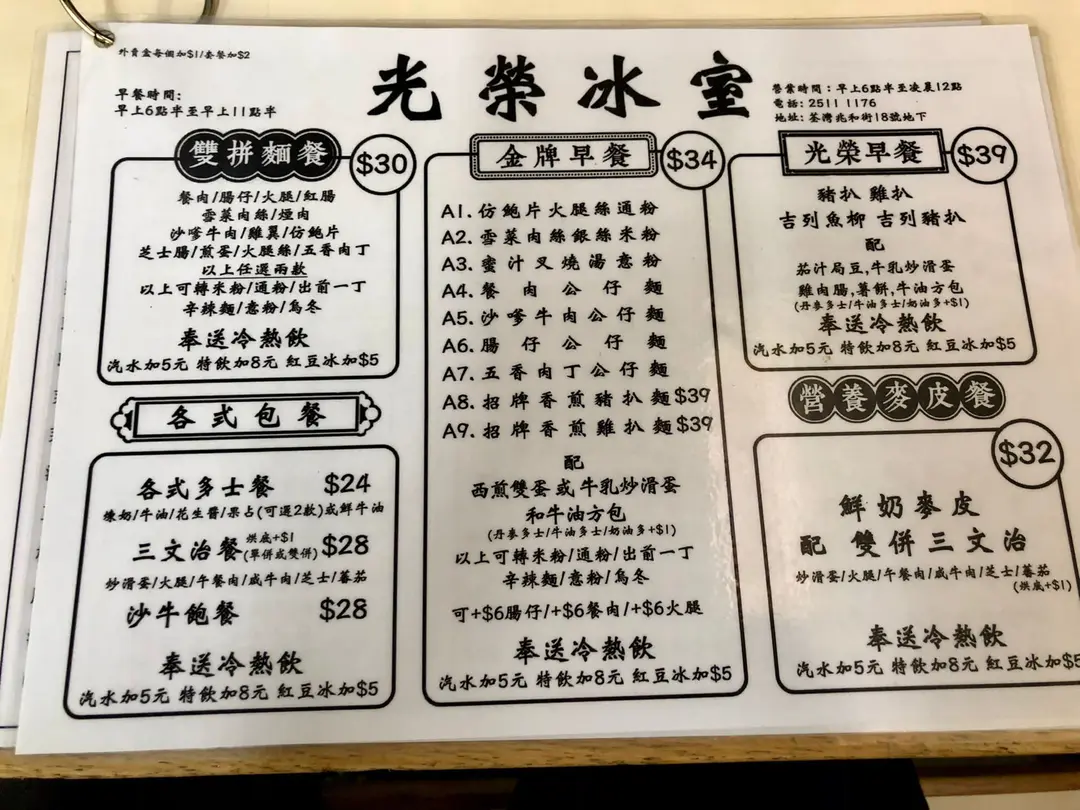 外賣盒每個加$1/套餐加$2
光榮冰室
早餐時間:
早上6點半至早上11點半
營業時間：早上6點半至凌晨12點
電話: 2511 1176
地址: 荃灣兆和街18號地下
雙拼麵餐 $30
餐肉/腸仔/火腿/紅腸
雪菜肉絲/煙肉
沙嗲牛肉/雞翼/仿鮑片
芝士腸/煎蛋/火腿絲/五香肉丁
以上任選兩款
以上可轉米粉/通粉/出前一丁
辛辣麵/意粉/烏冬
奉送冷熱飲
汽水加5元 特飲加8元 紅豆冰加$5
各式包餐
各式多士餐 $24
煉奶/牛油/花生醬/果占(可選2款)或鮮牛油
三文治餐 烘底+$1 (單併或雙併) $28
炒滑蛋/火腿/午餐肉/咸牛肉/芝士/蕃茄
沙牛飽餐 $28
奉送冷熱飲
汽水加5元 特飲加8元 紅豆冰加$5
金牌早餐 $34
A1. 仿鮑片火腿絲通粉
A2. 雪菜肉絲銀絲米粉
A3. 蜜汁叉燒湯意粉
A4. 餐肉公仔麵
A5. 沙嗲牛肉公仔麵
A6. 腸仔公仔麵
A7. 五香肉丁公仔麵
A8. 招牌香煎豬扒麵$39
A9. 招牌香煎雞扒麵$39
配
西煎雙蛋或牛乳炒滑蛋
和牛油方包
(丹麥多士/牛油多士/奶油多+$1)
以上可轉米粉/通粉/出前一丁
辛辣麵/意粉/烏冬
可+$6腸仔/+$6餐肉/+$6火腿
奉送冷熱飲
汽水加5元 特飲加8元 紅豆冰加$5
光榮早餐 $39
豬扒 雞扒
吉列魚柳 吉列豬扒
配
茄汁焗豆,牛乳炒滑蛋
雞肉腸,薯餅,牛油方包
(丹麥多士/牛油多士/奶油多+$1)
奉送冷熱飲
汽水加5元 特飲加8元 紅豆冰加$5
營養麥皮餐
$32
鮮奶麥皮
配 雙併三文治
炒滑蛋/火腿/午餐肉/咸牛肉/芝士/蕃茄
(烘底+$1)
奉送冷熱飲
汽水加5元 特飲加8元 紅豆冰加$5